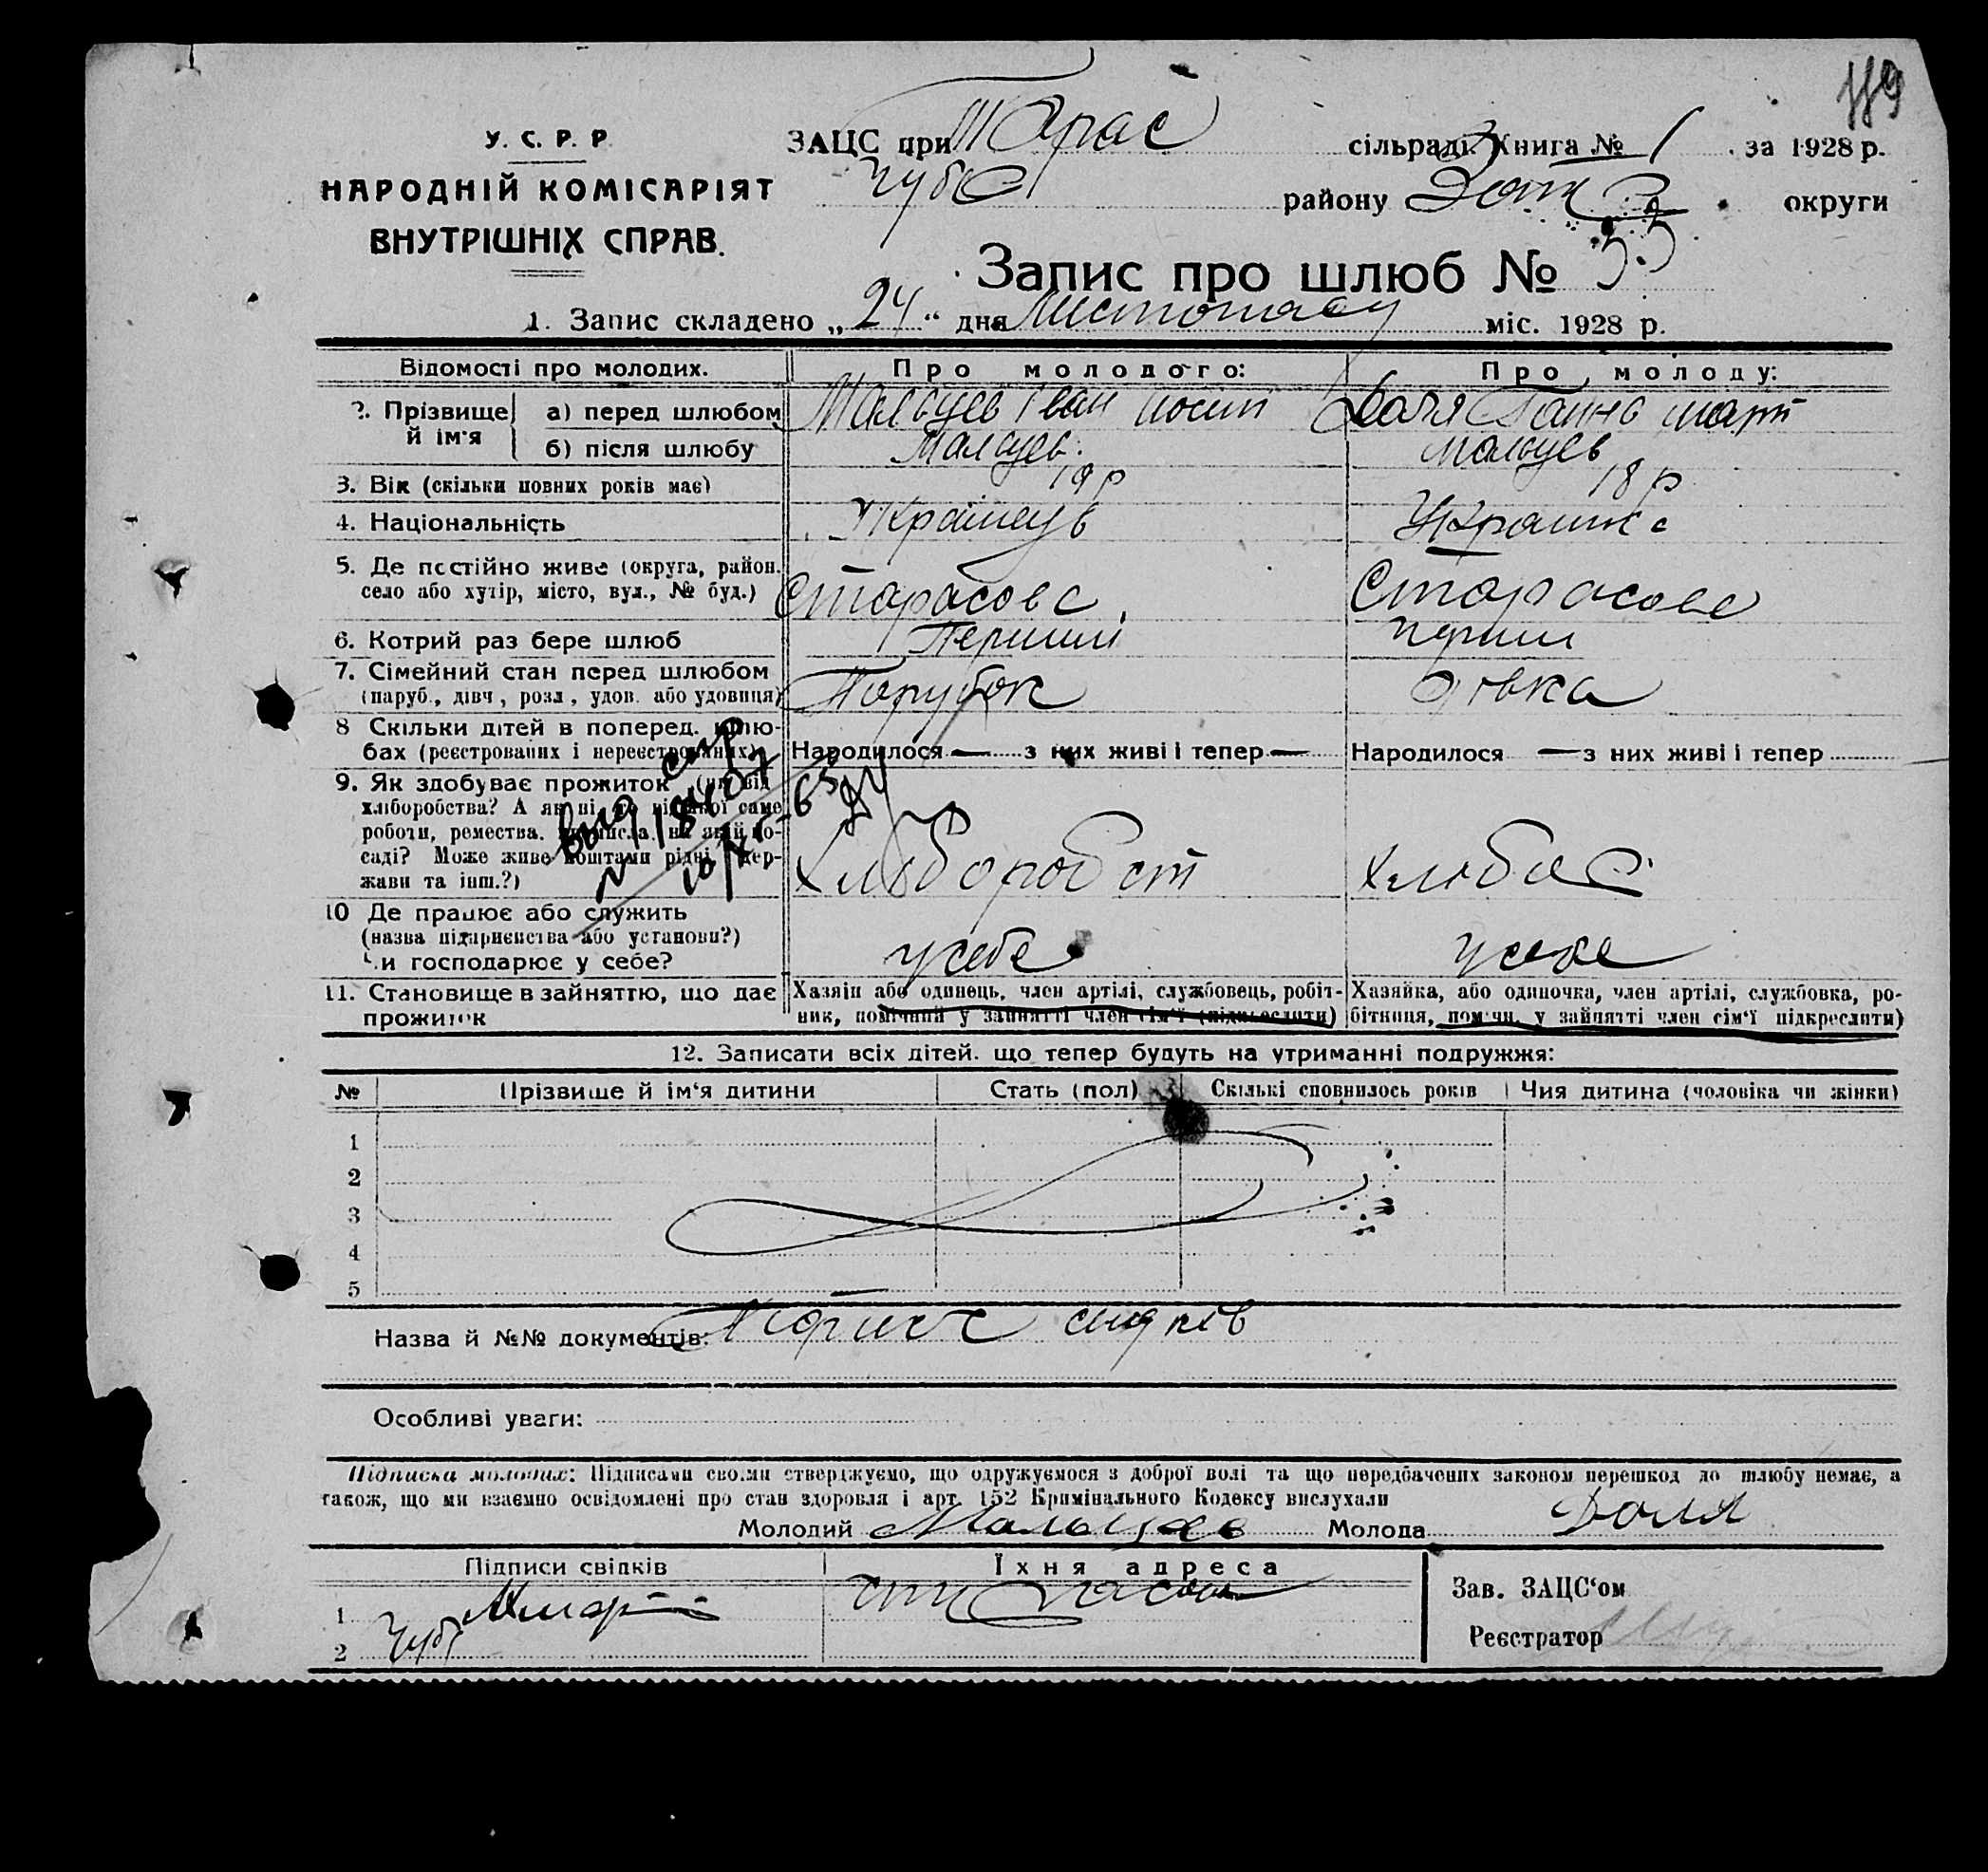 119
У. С. Р. Р.
НАРОДНІЙ КОМІСАРІЯТ
ВНУТРІШНІХ СПРАВ.
ЗАЦС при Тарас сільраді. Книга № 1 за 1928 р.
Чуб району округи
Запис про шлюб № 55
1. Запис складено „24“ дня Листопаду міс. 1928 р.
Відомості про молодих.
Про молодого:
Про молоду:
2. Прізвище й ім'я
а) перед шлюбом
Мальцев Іван Йосип
Доля Ганна Март
б) після шлюбу
Мальцев
Мальцев
3. Вік (скільки повних років має)
19 р
18 р
4. Національність
Українець
Українка
5. Де постійно живе (округа, район,
село або хутір, місто, вул., № буд.)
Старасовс
Старасове
6. Котрий раз бере шлюб
Перший
7. Сімейний стан перед шлюбом
(паруб., дівч., розл., удов. або удовиця)
Парубок
Дівка
8 Скільки дітей в поперед. шлю-
бах (реєстрованих і нереєстрованих)
Народилося — з них живі і тепер —
Народилося — з них живі і тепер
9. Як здобуває прожиток (чи від
хліборобства? А як ні, то від якої саме
роботи, ремества, промисла, на якій по-
саді? Може живе коштами рідні, дер-
жави та інш.?)
Хлібороб
10 Де працює або служить
(назва підприємства або установи?)
Чи господарює у себе?
у себе
у себе
11. Становище в зайняттю, що дає
прожиток
Хазяїн або одинець, член артілі, службовець, робіт-
ник, помічний у зайнятті член сім'ї (підкреслити)
Хазяйка, або одиночка, член артілі, службовка, ро-
бітниця, помічн. у зайнятті член сім'ї підкреслити)
12. Записати всіх дітей, що тепер будуть на утриманні подружжя:
№ Прізвище й ім'я дитини Стать (пол) Скількі сповнилось років Чия дитина (чоловіка чи жінки)
1
2
3
4
5
Назва й №№ документів:
Особливі уваги:
Підписка молодих: Підписами своїми стверджуємо, що одружуємося з доброї волі та що передбачених законом перешкод до шлюбу немає, а
також, що ми взаємно освідомлені про стан здоровля і арт. 152 Кримінального Кодексу вислухали
Молодий Мальцев Молода Доля
Підписи свідків
Їхня адреса
Зав. ЗАЦС'ом
1
2
Реєстратор